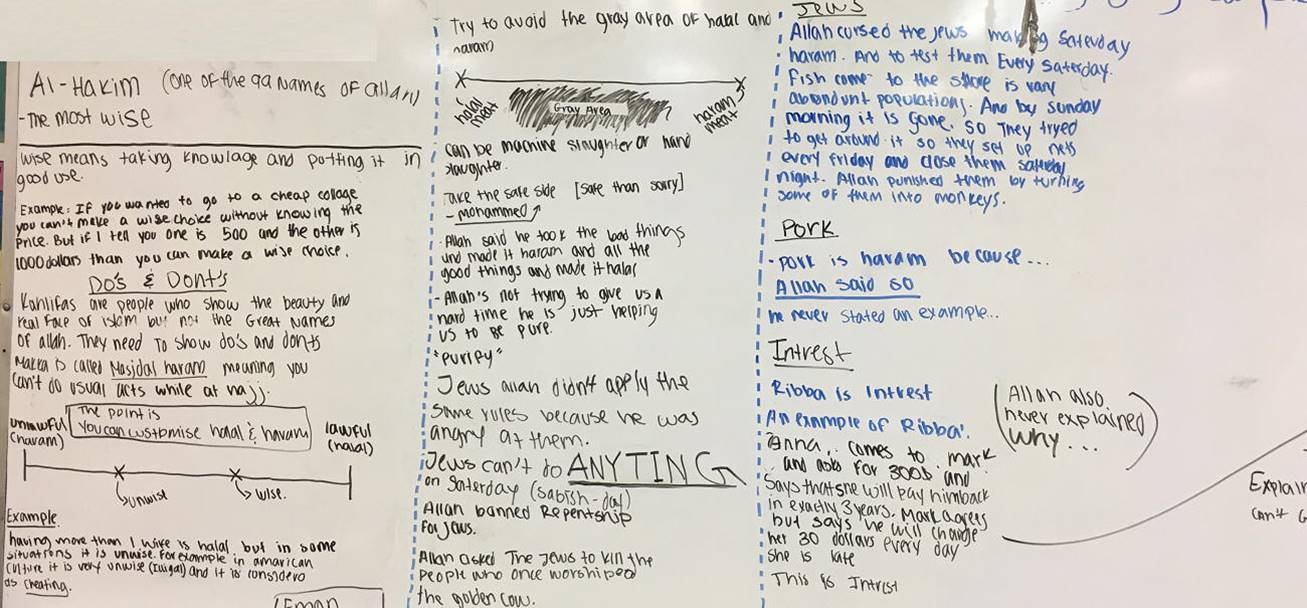 Al-Hakim (one of the 99 names of allah)
-The most wise
wise means taking knowlage and potting it in
good use.
Example: If you wanted to go to a cheap collage
you can't make a wise choice without knowing the
Price. But if I tell you one is 500 and the other is
1000 dollars than you can make a wise choice.
Do's & Dont's
Kahlifas are people who show the beauty and
real face of islam but not the Great names
of allah. They need to show do's and donts
Makka is called Masjidal haram meaning you
can't do usual acts while at hajj.
The point is
you can customise halal & haram
unlawful
(haram)
lawful
(halal)
unwise
wise.
Example
having more than 1 wife is halal but in some
situations it is unwise. For example in amarican
culture it is very unwise (iligal) and it is considerd
as cheating.
Eman
Try to avoid the gray area of halal and
haram
halal
meat
Gray Area
haram
meat
can be machine slaughter or hand
slaughter.
Take the safe side [safe than sorry]
- mohammed
- Allah said he took the bad things
and made it haram and all the
good things and made it halal
- Allah's not trying to give us a
hard time he is just helping
us to be pure.
"purify"
Jews allah didn't apply the
same rules because he was
angry at them.
Jews can't do ANYTING
on Saterday (sabish-day)
Allah banned Repentship
For Jaws.
Allah asked The Jews to kill the
people who once worshiped
the golden cow.
Jews
Allah cursed the Jews making Saterday
haram. And to test them Every Saterday.
Fish come to the shore is vary
abondunt populations. And by sunday
morning it is gone. So They tryed
to get around it so they set up nets
every friday and close them saterday
night. Allah punished them by turning
some of them into monkeys.
Pork
- pork is haram because...
Allah said so
he never stated an example...
Intrest
Ribba is Intrest
An example of Ribba'.
Anna, comes to mark
and asks for 300$ and
Says that she will pay him back
in exactly 3 years. Mark agrees
but says he will charge
her 30 dollars every day
she is late
This is Intrest
(Allah also
never explained
why...)
Explain
can't